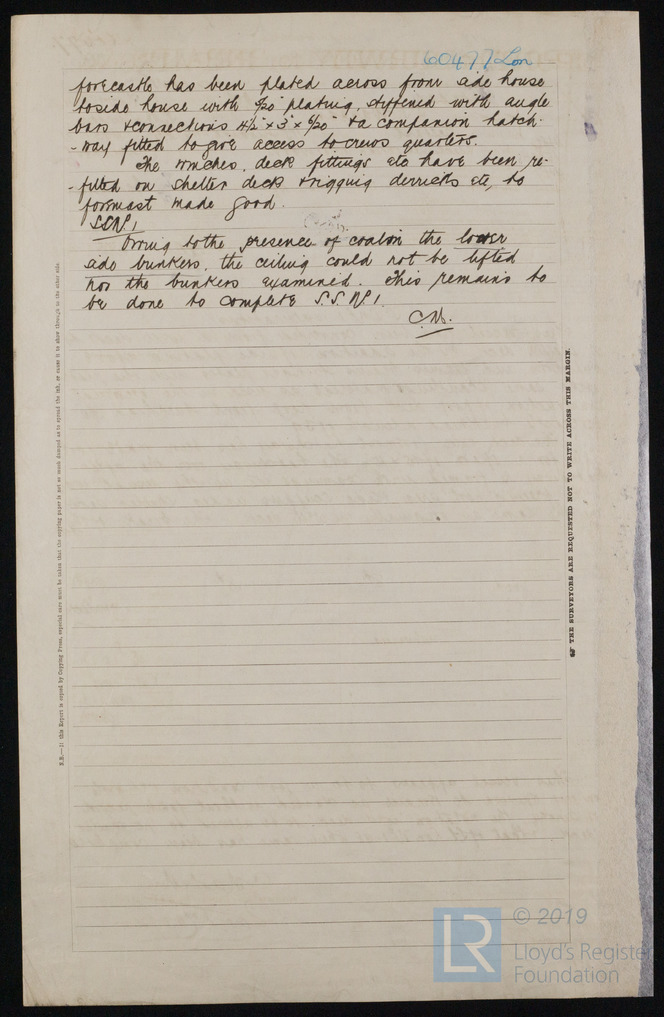 60477 Lon
forecastle has been plated across from side house
to side house with /20" plating, stiffened with angle
bars & connections 4½" × 3" × 6/20" & a companion hatch-
-way fitted to give access to crews quarters.
The winches, deck fittings etc have been re-
-fitted on shelter deck & rigging derricks etc, to
foremast made good.
S.S.Nº1
Owing to the presence of coal in the lower
side bunkers, the ceiling could not be lifted
nor the bunkers examined. This remains to
be done to complete S.S. Nº1.
N.B.—If this Report is copied by Copying Press, especial care must be taken that the copying paper is not so much damped as to spread the ink, or cause it to show through to the other side.
☞ THE SURVEYORS ARE REQUESTED NOT TO WRITE ACROSS THIS MARGIN.
LR
© 2019
Lloyd's Register
Foundation